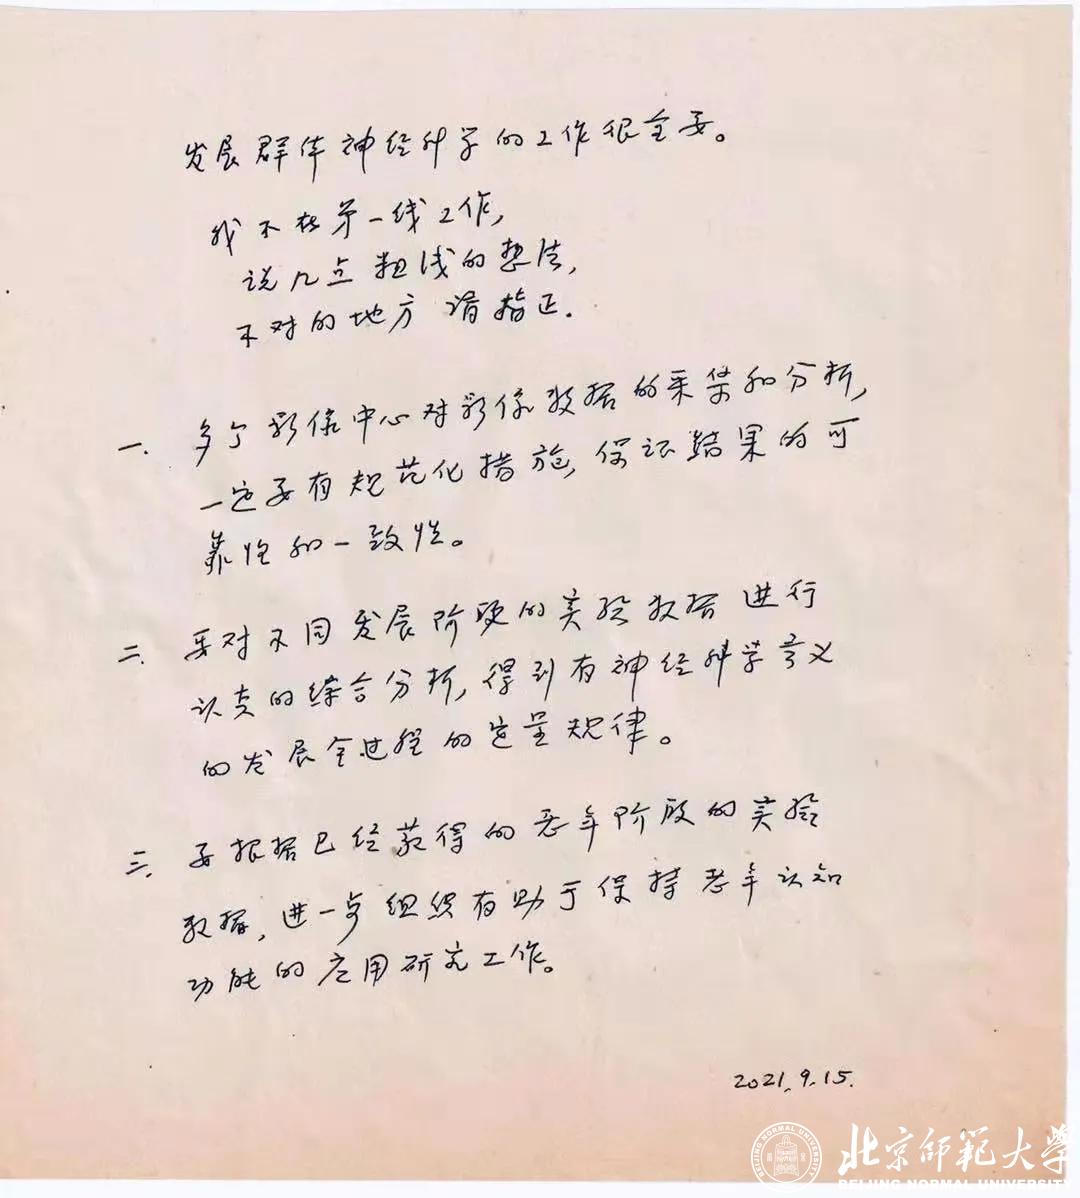 发展群体神经科学的工作很重要。
我不在第一线工作,
说几点粗浅的想法,
不对的地方请指正.
一、多个影像中心对影像数据的采集和分析,
一定要有规范化措施,保证结果的可
靠性和一致性。
二、要对不同发展阶段的实验数据进行
认真的综合分析,得到有神经科学意义
的发展全过程的定量规律。
三、要根据已经获得的老年阶段的实验
数据,进一步组织有助于保持老年认知
功能的应用研究工作。
2021.9.15.
北京师范大学
BEIJING NORMAL UNIVERSITY